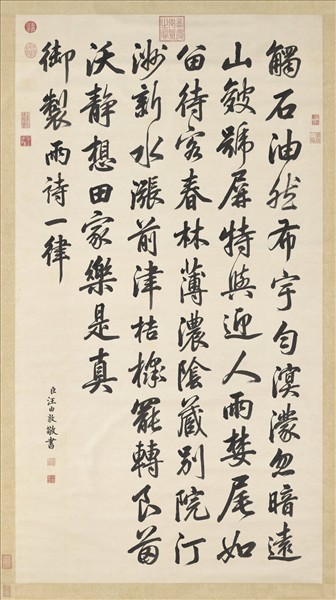 觸石油然布宇勻溟濛忽暗遠
山皴號屏特與迎人雨婪尾如
留待客春林薄濃陰藏別院汀
洲新水漲前津桔槔罷轉良苗
沃靜想田家樂是真
御製雨詩一律
臣汪由敦敬書